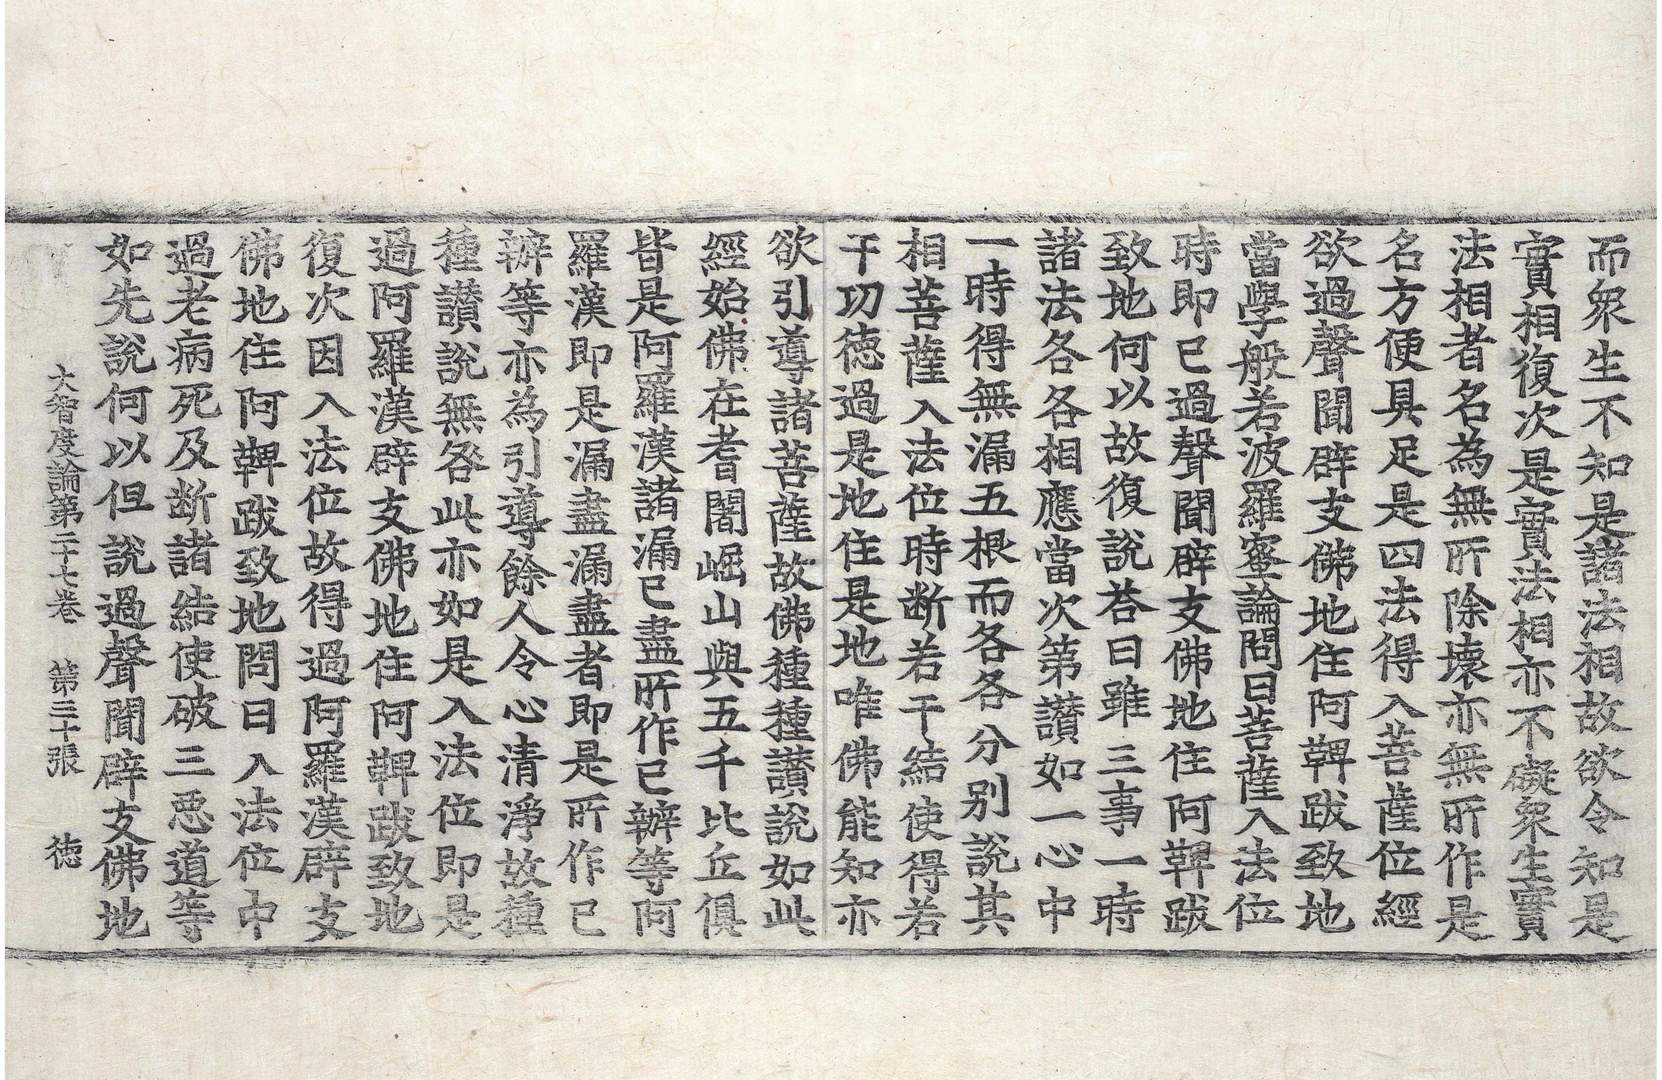 而衆生不知是諸法相故欲令知是
實相復次是實法相亦不礙衆生實
法相者名為無所除壞亦無所作是
名方便具足是四法得入菩薩位經
欲過聲聞辟支佛地住阿鞞跋致地
當學般若波羅蜜論問曰菩薩入法位
時即已過聲聞辟支佛地住阿鞞跋
致地何以故復說荅曰雖三事一時
諸法各各相應當次第讃如一心中
一時得無漏五根而各各分別說其
相菩薩入法位時断若干結使得若
干功徳過是地住是地唯佛能知亦
欲引導諸菩薩故佛種種讃說如此
經始佛在耆闍崛山與五千比丘俱
皆是阿羅漢諸漏已盡所作已辦等阿
羅漢即是漏盡漏盡者即是所作已
辦等亦為引導餘人令心清淨故種
種讃說無咎此亦如是入法位即是
過阿羅漢辟支佛地住阿鞞跋致地
復次因入法位故得過阿羅漢辟支
佛地住阿鞞跋致地問曰入法位中
過老病死及断諸結使破三惡道等
如先說何以但說過聲聞辟支佛地
大智度論第二十七卷 第三十張 徳